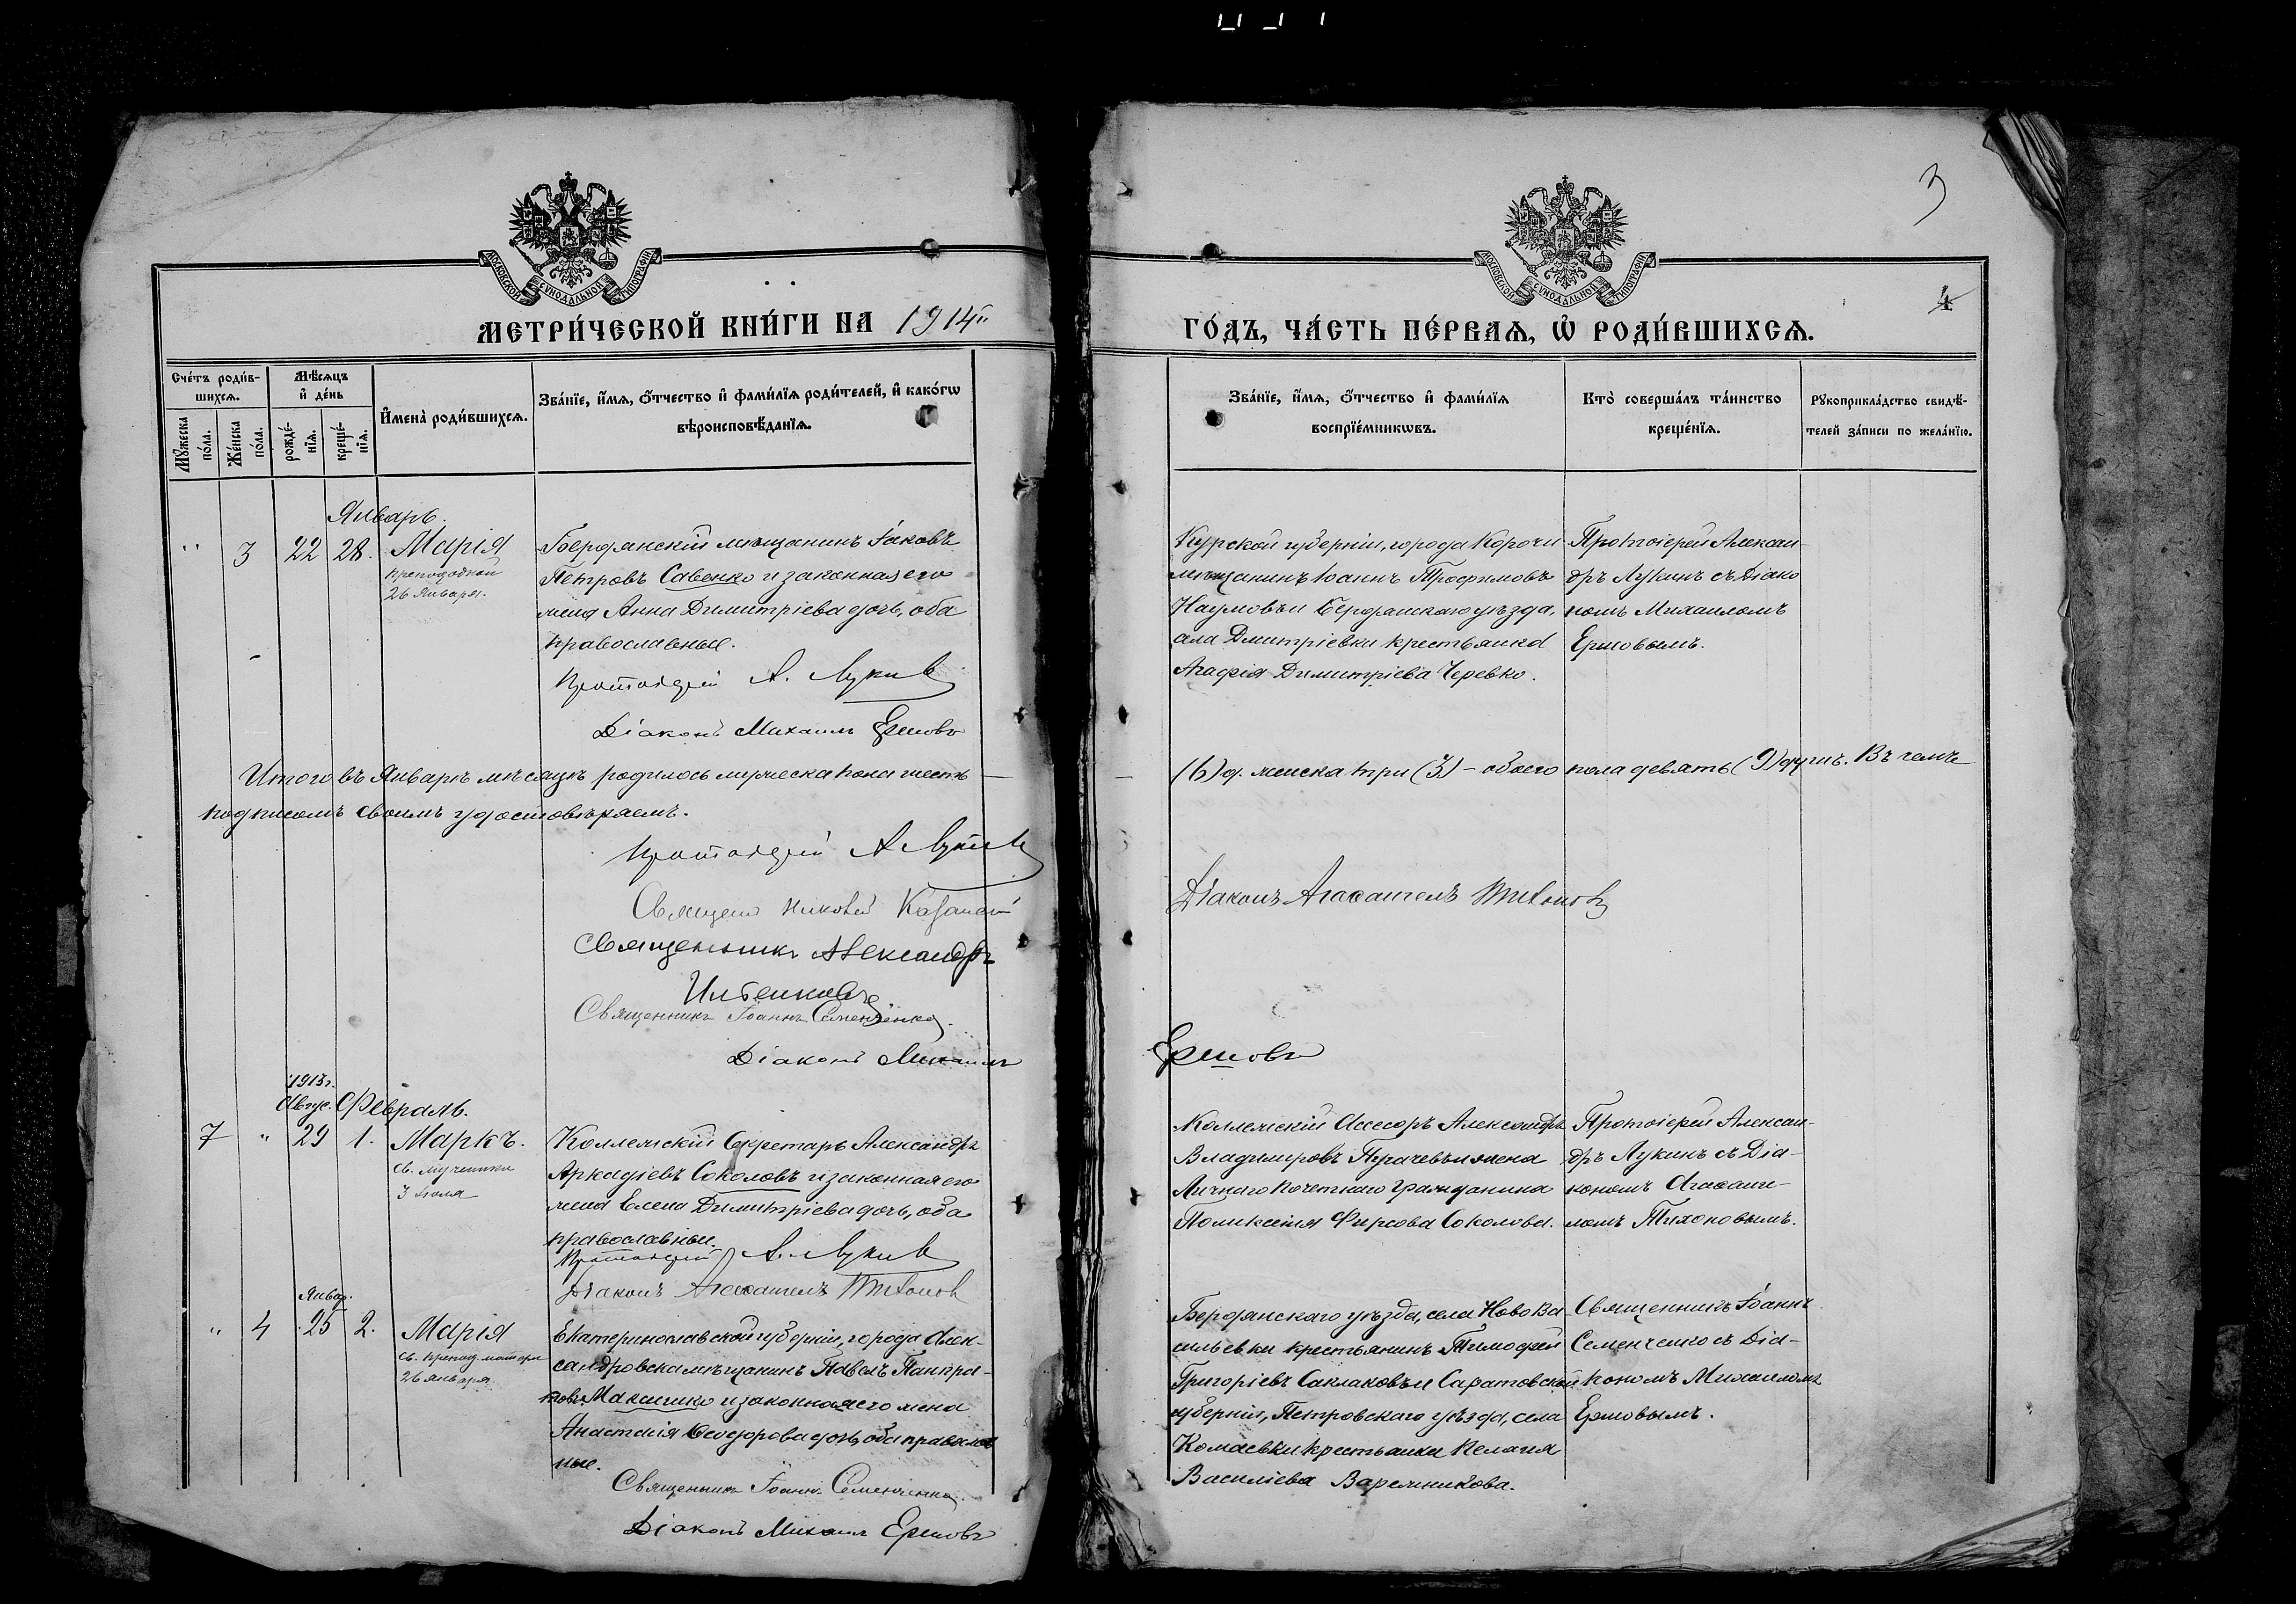 3
4
МОСКОВСКОЙ СѴНОДАЛЬНОЙ ТИПОГРАФІИ
МОСКОВСКОЙ СѴНОДАЛЬНОЙ ТИПОГРАФІИ
МЕТРИ́ЧЕСКОЙ КНИ́ГИ НА 1914
ГО́ДЪ, ЧА́СТЬ ПЕ́РВАѦ, Ѡ҆ РОДИ́ВШИХСѦ.
Сче́тъ роди́в-
шихсѧ.
Мѣ́сѧцъ
и҆ де́нь
Мꙋ́жеска
по́ла.
Же́нска
по́ла.
рожде́-
нїѧ.
креще́-
нїѧ.
И҆мена̀ роди́вшихсѧ.
Зва́нїе, и҆́мѧ, ѻ҆́тчество и҆ фами́лїѧ роди́телей, и҆ како́гѡ
вѣроисповѣ́данїѧ.
Зва́нїе, и҆́мѧ, ѻ҆́тчество и҆ фами́лїѧ
воспрїе́мникѡвъ.
Кто̀ соверша́лъ та́инство
креще́нїѧ.
Рꙋкоприкла́дство свидѣ́-
телей за́писи по жела́нїю.
Январь.
" 3 22 28. Марія
преподобной
26 Января.
Бердянскій мѣщанинъ Іаковъ
Петровъ Савенко и законная его
жена Анна Димитріева дочь, оба
православные.
Протоіерей А. Лукинъ
Діаконъ Михаилъ Ершовъ
Курской губерніи, города Корочи
мѣщанинъ Іоаннъ Трофимовъ
Наумовъ и Бердянскаго уѣзда,
села Дмитріевки крестьянка
Агафія Димитріева Черевко.
Протоіерей Алексан-
дръ Лукинъ съ Діако
номъ Михаиломъ
Ершовымъ.
Итого въ Январѣ мѣсяцѣ родилось мужеска пола шесть
(6) д. женска три (3) – обоего пола девять (9) душъ. Въ чемъ
подписомъ своимъ удостовѣряемъ.
Протоіерей А. Лукинъ
Священ Николай Казанскій
Священникъ Александръ
Священникъ Іоаннъ Семенченко.
Діаконъ Михаилъ
Діаконъ Агаѳангелъ Тихоновъ
Ершовъ
1913 г.
Авгус. Февраль.
7 " 29 1. Маркъ.
св. мученика
3 Іюля
Коллежскій Секретарь Александръ
Аркадіевъ Соколовъ и законная его
жена Елена Димитріева дочь, оба
православные.
Протоіерей А. Лукинъ
Діаконъ Агаѳангелъ Тихоновъ
Коллежскій Ассесоръ Александръ
Владимировъ и жена
Личнаго Почетнаго Гражданина
Поликсенія Фирсова Соколова.
Протоіерей Алексан-
дръ Лукинъ съ Діа-
кономъ Агаѳанге-
ломъ Тихоновымъ.
Январ.
" 4 25 2. Марія
св. препод. матери
26 января
Екатеринославской губерніи, города Алек-
сандровска мѣщанинъ Павелъ Панкра-
товъ Максимко и законная его жена
Анастасія Ѳеодорова дочь, оба православ
ные.
Священникъ Іоаннъ Семенченко.
Діаконъ Михаилъ Ершовъ
Бердянскаго уѣзда, села Ново Ва-
сильевки крестьянинъ Тимофей
Григоріевъ Саклаковъ и Саратовской
губерніи, Петровскаго уѣзда, села
Комаевки крестьянка Пелагія
Василіева Варежникова.
Священникъ Іоаннъ
Семенченко съ Діа-
кономъ Михаиломъ
Ершовымъ.